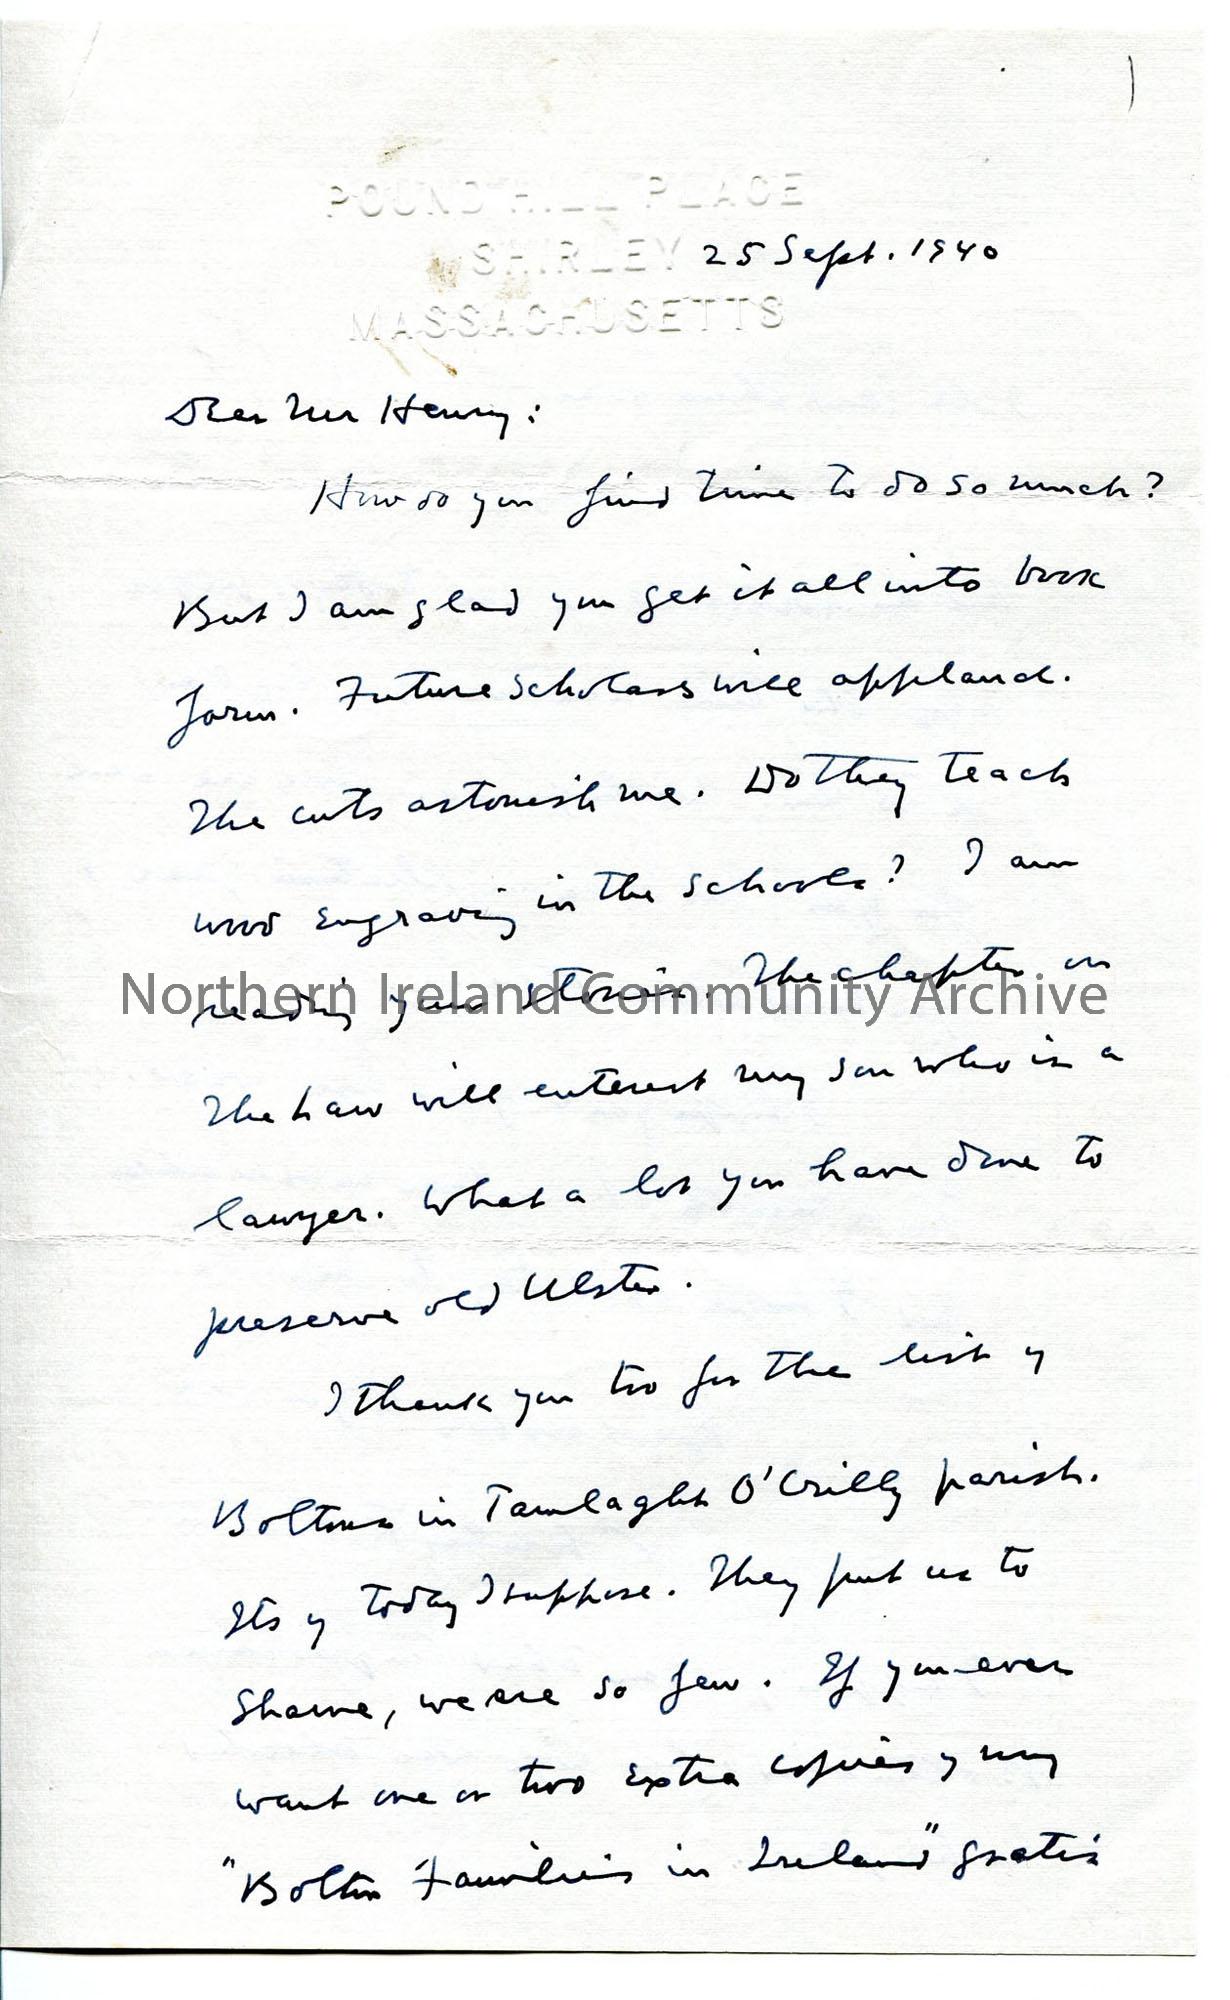 POUND HILL PLACE
SHIRLEY 25 Sept. 1940
MASSACHUSETTS
Dear Mr Henry:
How do you find time to do so much?
But I am glad you get it all into book
form. Future scholars will applaud.
The cuts astonish me. Do they teach
wood engraving in the schools? I am
reading your stories. The chapter on
Northern Ireland Community Archive
the Law will interest my son who is a
lawyer. What a lot you have done to
preserve old Ulster.
I thank you too for the list of
Boltons in Tamlaght O'Crilly parish.
Its of today I suppose. They put us to
shame, we are so few. If you ever
want one or two extra copies of my
"Bolton Families in Ireland" gratis